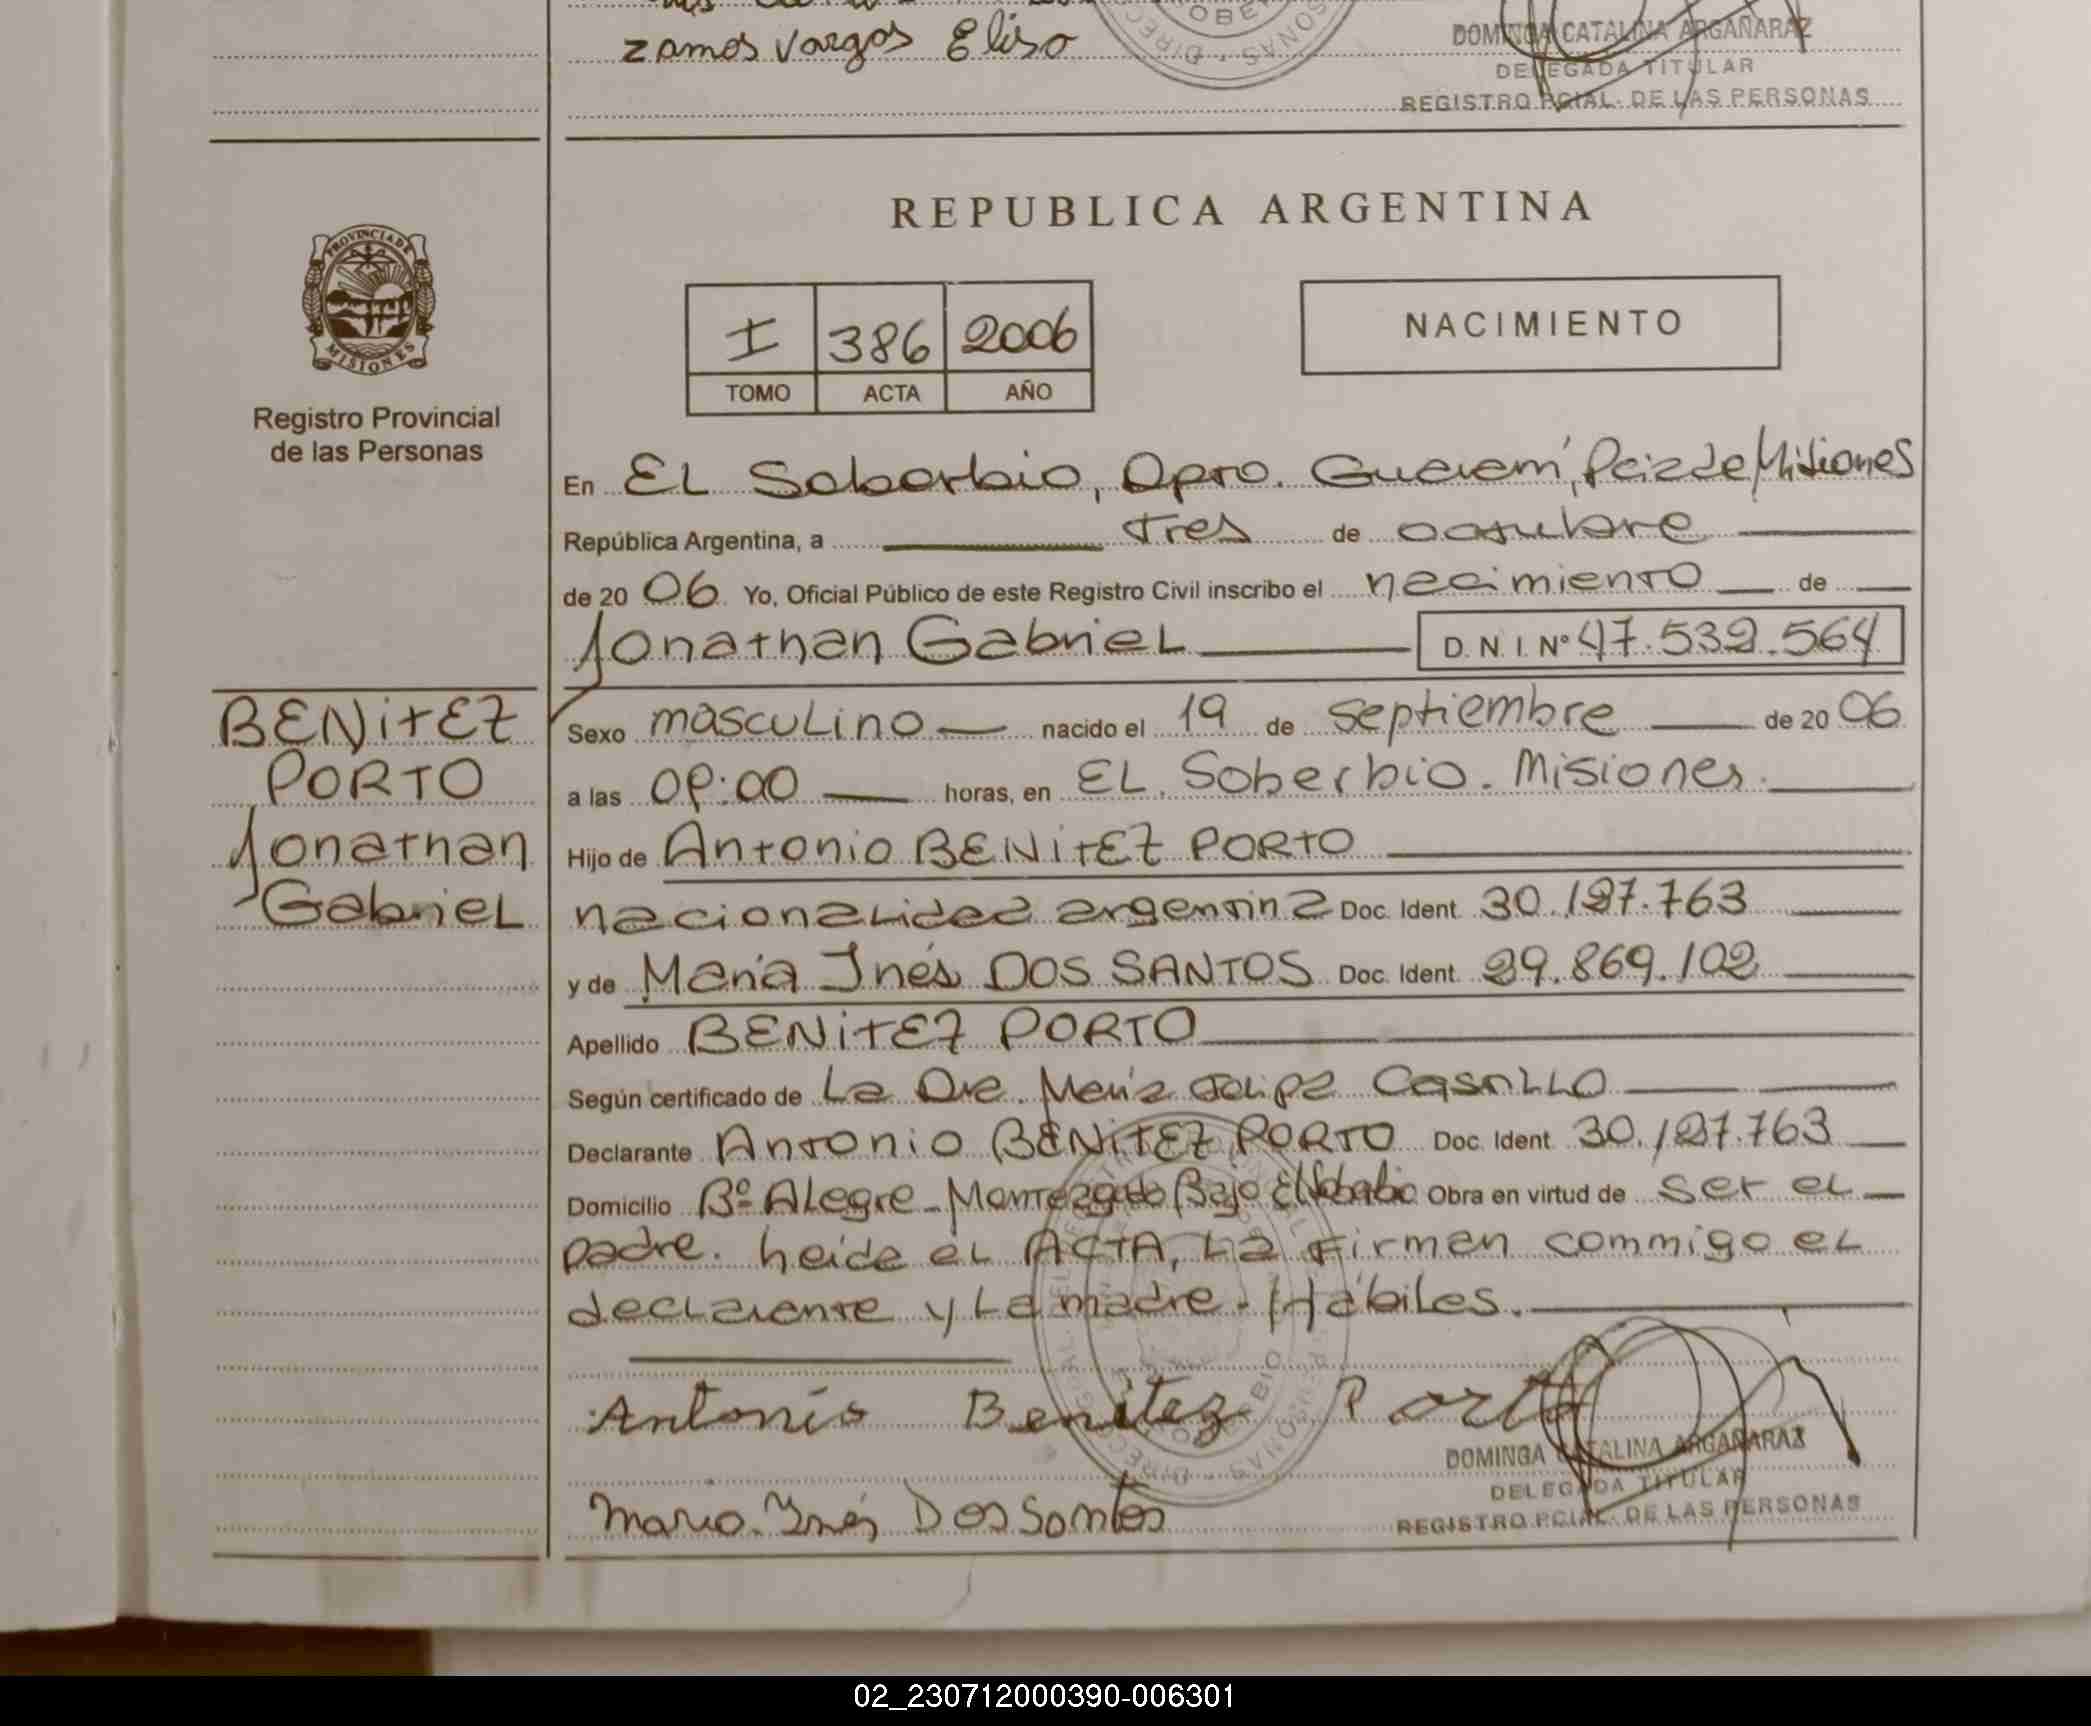 zamos Vargas Eliso
DOMINGA CATALINA ARGAÑARAZ
DELEGADA TITULAR
REGISTRO PCIAL. DE LAS PERSONAS
REPUBLICA ARGENTINA
PROVINCIA DE
MISIONES
Registro Provincial
de las Personas
I 386 2006
TOMO ACTA AÑO
NACIMIENTO
En EL Soberbio, Dpto. Guaraní, Pcia de Misiones
República Argentina, a tres de octubre
de 20 06 Yo, Oficial Público de este Registro Civil inscribo el nacimiento de
Jonathan Gabriel D. N. I. Nº 47.532.564
BENiTEZ
PORTO
Jonathan
Gabriel
Sexo masculino nacido el 19 de septiembre de 20 06
a las horas, en EL Soberbio. Misiones.
Hijo de Antonio BENiTEZ PORTO
nacionalidad argentina Doc. Ident. 30.127.763
y de María Inés DOS SANTOS Doc. Ident. 29.869.102
Apellido BENiTEZ PORTO
Según certificado de La Dra. María Castillo
Declarante Antonio BENiTEZ PORTO Doc. Ident. 30.127.763
Domicilio Bº ALegre - Bajo Obra en virtud de ser el
padre. heida el ACTA, La firman commigo el
declarante y La madre. Hábiles.
Antonio Benitez Porto
DOMINGA CATALINA ARGAÑARAZ
DELEGADA TITULAR
REGISTRO PCIAL. DE LAS PERSONAS
Maria Inés Dos Santos
02_230712000390-006301